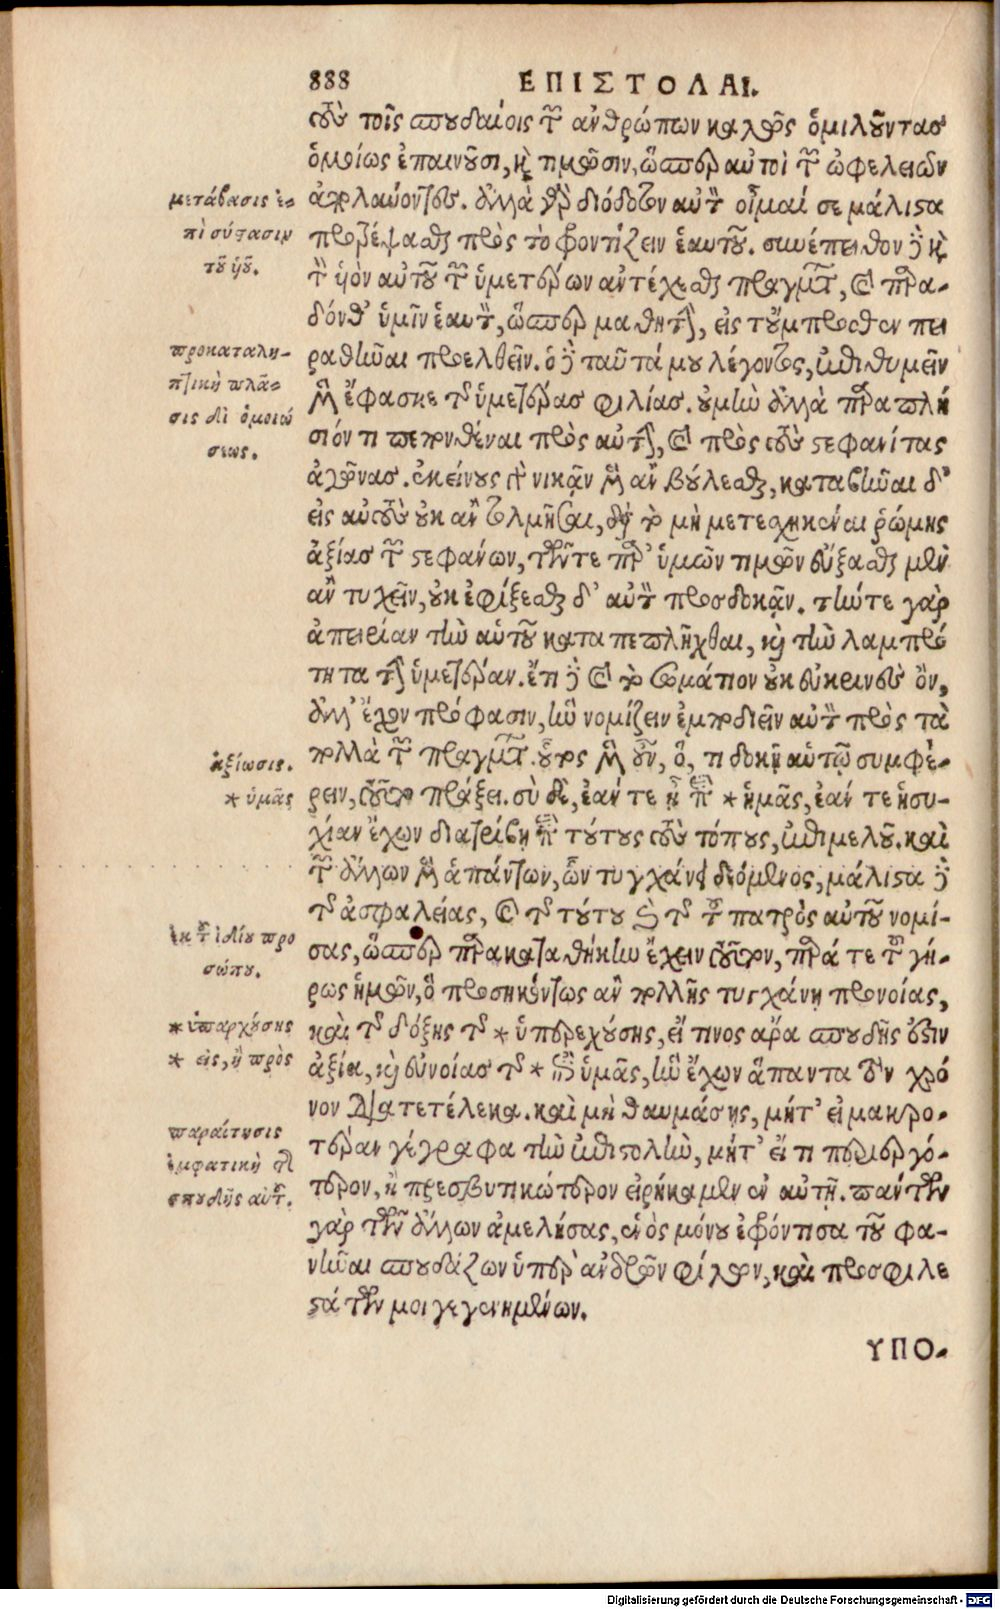 888 ΕΠΙΣΤΟΛΑΙ.
τοὺς τοῖς σπουδαίοις τῶν ἀνθρώπων καλῶς ὁμιλοῦντας
ὁμοίως ἐπαινοῦσι, καὶ τιμῶσιν, ὥσπερ αὐτοὶ τῶν ὠφελειῶν
ἀπολαύοντες. ἀλλὰ γὰρ διόδοτον αὐτὸν οἶμαί σε μάλιστα
προτρέψασθαι πρὸς τὸ φροντίζειν ἑαυτοῦ. συνέπειθον δὲ καὶ
τὸν υἱὸν αὐτοῦ τῶν ὑμετέρων ἀντέχεσθαι πραγμάτων, καὶ παρα-
δόνθ' ὑμῖν ἑαυτὸν, ὥσπερ μαθητὴν, εἰς τοὔμπροσθεν πει
ραθῆναι προελθεῖν. ὁ δὲ ταῦτά μου λέγοντος, ἐπιθυμεῖν
μὲν ἔφασκε τῆς ὑμετέρας φιλίας. οὐμὴν ἀλλὰ παραπλή
σιόν τι πεπονθέναι πρὸς αὐτὴν, καὶ πρὸς τοὺς στεφανίτας
ἀγῶνας. ἐκείνους τε νικᾷν μὲν ἂν βούλεσθαι, καταβῆναι δ'
εἰς αὐτοὺς οὐκ ἂν τολμῆσαι, διὰ τὸ μὴ μετεσχηκέναι ῥώμης
ἀξίας τῶν στεφάνων, τῶν τε παρ' ὑμῶν τιμῶν εὔξασθαι μὲν
ἂν τυχεῖν, οὐκ ἐφίξεσθαι δ' αὐτῶν προσδοκᾷν. τήν τε γὰρ
ἀπειρίαν τὴν αὑτοῦ καταπεπλῆχθαι, καὶ τὴν λαμπρό
τητα τὴν ὑμετέραν. ἔτι δὲ καὶ τὸ σωμάτιον οὐκ εὐκρινὲς ὂν,
ἀλλ' ἔχον πρόφασιν, ἣν νομίζειν ἐμποδιεῖν αὐτὸν πρὸς τὰ
πολλὰ τῶν πραγμάτων. οὗτος μὲν οὖν, ὅ, τι δοκῇ αὑτῷ συμφέ-
ρειν, τοῦτο πράξει. σὺ δὲ, ἐάν τε ᾖ περὶ * ἡμᾶς, ἐάν τε ἡσυ-
χίαν ἔχων διατρίβῃ περὶ τούτους τοὺς τόπους, ἐπιμελοῦ. καὶ
τῶν ἄλλων μὲν ἁπάντων, ὧν τυγχάνῃ δεόμενος, μάλιστα δὲ
τῆς ἀσφαλείας, καὶ τῆς τούτου καὶ τῆς τοῦ πατρὸς αὐτοῦ νομί-
σας, ὥσπερ παρακαταθήκην ἔχειν τοῦτον, παρά τε τοῦ γή-
ρως ἡμῶν, ὃ προσηκόντως ἂν πολλῆς τυγχάνῃ προνοίας,
καὶ τῆς δόξης τῆς * ὑπερεχούσης, εἴ τινος ἄρα σπουδῆς ἐστιν
ἀξία, καὶ εὐνοίας τῆς * περὶ ὑμᾶς, ἣν ἔχων ἅπαντα τὸν χρό
νον διατετέλεκα. καὶ μὴ θαυμάσῃς, μήτ' εἰ μακρο-
τέραν γέγραφα τὴν ἐπιστολὴν, μήτ' εἴ τι περιεργό-
τερον, ἢ πρεσβυτικώτερον εἰρήκαμεν ἐν αὐτῇ. πάντων
γὰρ τῶν ἄλλων ἀμελήσας, ἑνὸς μόνου ἐφρόντισα τοῦ φα-
νῆναι σπουδάζων ὑπὲρ ἀνδρῶν φίλων, καὶ προσφιλε
στάτων μοι γεγενημένων.
ΥΠΟ-
μετάβασις ἐ-
πὶ σύστασιν
τοῦ υἱοῦ.
προκαταλη-
πτικὴ πλά-
σις δι ὁμοιώ
σεως.
ἀξίωσις.
* ὑμᾶς
ἐκ τοῦ ἰδίου προ
σώπου.
* ὑπαρχούσης
* εἰς, ἢ πρὸς
παραίτησις
ἐμφατικὴ τῆς
σπουδῆς αὐτοῦ.
Digitalisierung gefördert durch die Deutsche Forschungsgemeinschaft - DFG